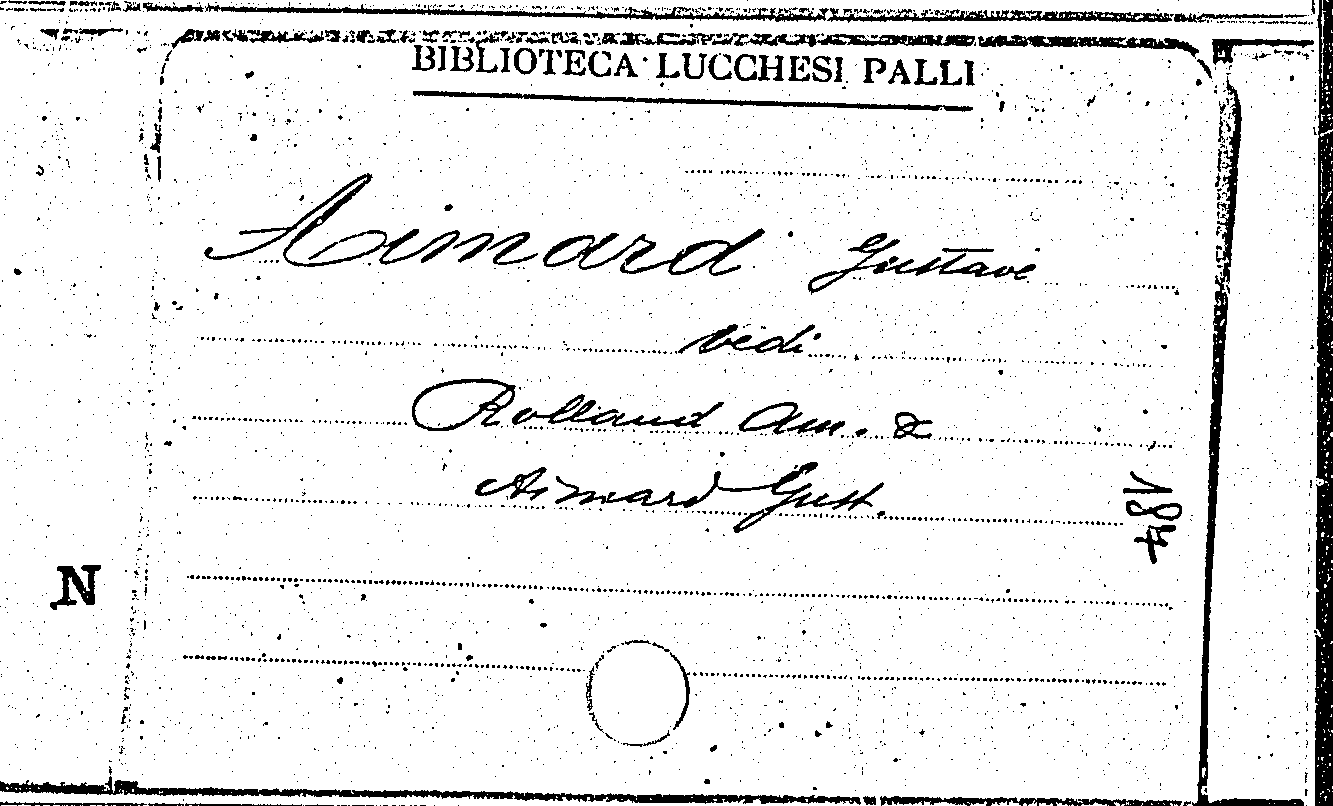 BIBLIOTECA LUCCHESI PALLI
Aimard Gustave
vedi
Rolland Am. &
Aimard Gust.
184
N